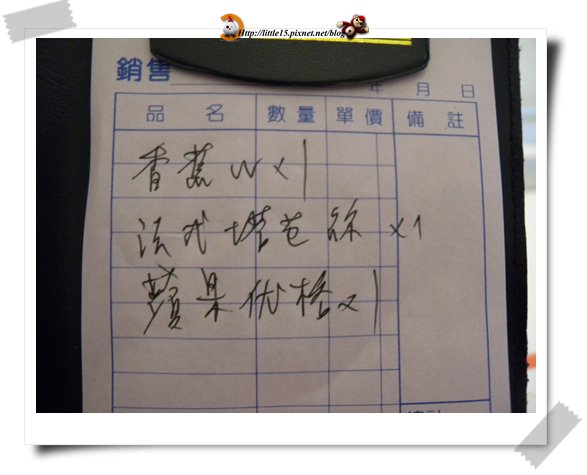 Http://little15.pixnet.net/blog
銷售
年 月 日
品名 數量 單價 備註
香蕉W x1
法式塔芭絲 x1
蘋果优格x1